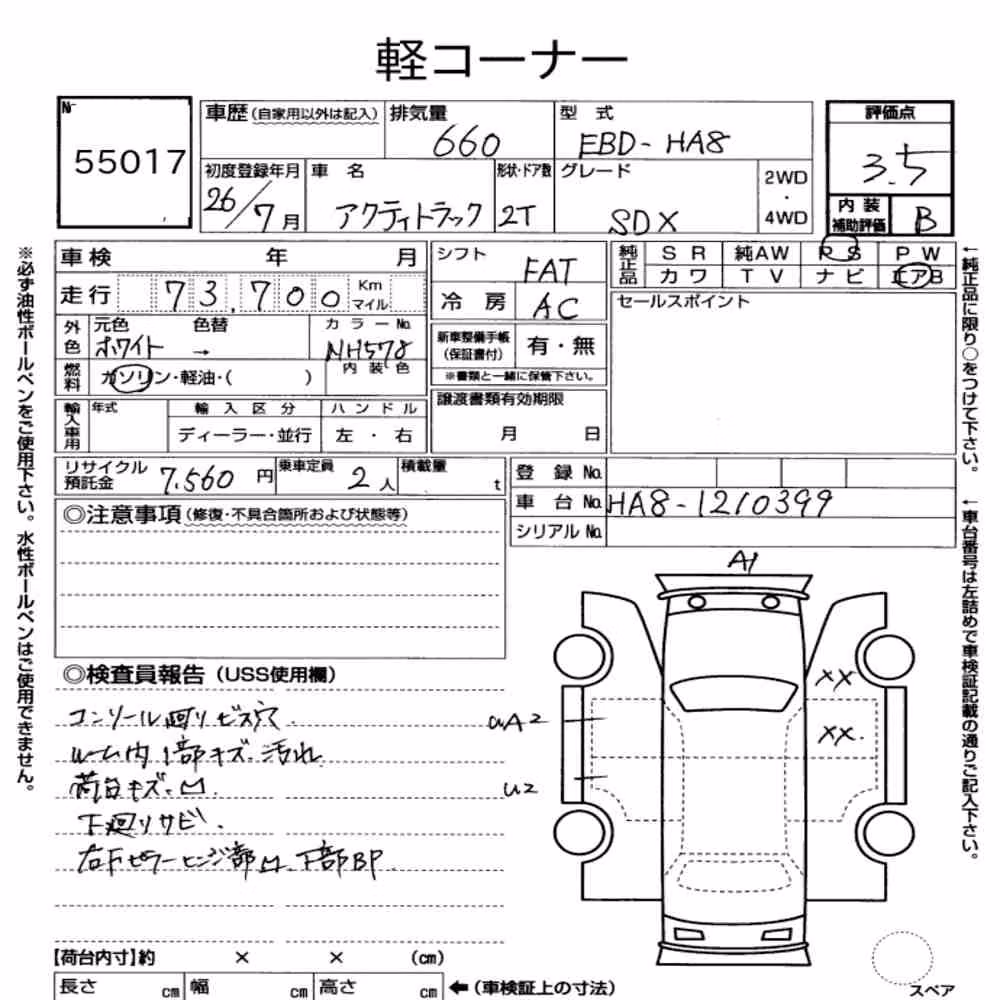 軽コーナー
No 55017
車歴(自家用以外は記入) 排気量 660 型式 EBD-HA8
初度登録年月 26/7月 車名 アクティトラック 形状・ドア数 2T グレード SDX 2WD・4WD
評価点 3.5
内装補助評価 B
※必ず油性ボールペンをご使用下さい。水性ボールペンはご使用できません。
車検 年 月
走行 73,700 Km マイル
外色 元色 ホワイト 色替 → カラーNo. NH578
内装色
燃料 ガソリン・軽油・( )
輸入車用 年式 輸入区分 ディーラー・並行 ハンドル 左・右
シフト FAT
冷房 AC
新車整備手帳(保証書付) 有・無
※書類と一緒に保管下さい。
譲渡書類有効期限
月 日
純正品 SR 純AW PS PW
カワ TV ナビ エアB
セールスポイント
←純正品に限り○をつけて下さい。
←車台番号は左詰めで車検証記載の通りご記入下さい。
リサイクル預託金 7,560円 乗車定員 2人 積載量 t
登録No.
車台No. HA8-1210399
シリアルNo.
◎注意事項(修復・不具合箇所および状態等)
◎検査員報告(USS使用欄)
コンソール廻りビス穴
ルーム内1部キズ、汚れ
荷台キズ、凹
下廻りサビ.
右Fピラーヒンジ部凹、下部BP.
A1
XX
UA2
XX.
U2
【荷台内寸】約 × × (cm)
長さ cm 幅 cm 高さ cm ←(車検証上の寸法)
スペア